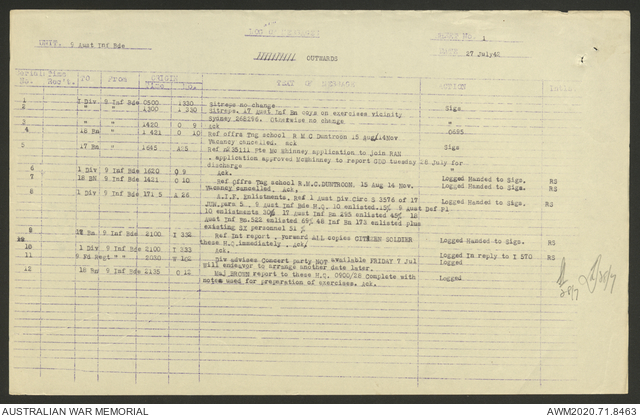 LOG OF MESSAGES
UNIT. 9 Aust Inf Bde
No. 1
OUTWARDS
DATE 27 July 42
Serial Time
TO From ORIGIN Time No. TEXT OF MESSAGE ACTION
1 1 Div 9 Inf Bde 0500 I 330 Sitreps no change Sigs
2 " " 1300 I 330 Sitrep. 17 Aust Inf Bn coys on exercises vicinity
Sydney 266296. Otherwise no change "
3 " " 1420 O 9 Ack
4 18 Bn " 1421 O 10 Ref offrs Tng school R M C Duntroon 15 Aug/14Nov 0695
Vacancy cancelled. Ack
5 17 Bn " 1645 Ref N235111 Pte Mc Whinney application to join RAN Sigs
. application approved McWhinney to report GSO tuesday 28 July for
discharge "
6 1 Div 9 Inf Bde 1620 O 9 Ack. Logged Handed to Sigs. RS
7 18 BN 9 Inf Bde 1421 O 10 Ref offrs Tng school R.M.C.DUNTROON, 15 Aug 14 Nov. Logged Handed to Sigs. RS
Vacancy cancelled. Ack,
8 1 Div 9 Inf Bde 1715 A 26 A.I.F. Enlistments. Ref 1 Aust Div.Circ S 3376 of 17 Logged Handed to Sigs. RS
JUN.para 5 . 9 Aust Inf Bde H.Q. 10 enlisted.15% 9 Aust Def Pl
10 enlistments 30% 17 Aust Inf Bn 295 enlisted 45% 18
Aust Inf Bn.522 enlisted 69% 48 Inf Bn 172 enlisted plus
existing SX personnel 51 %
9 Inf Bde 2100 I 332 Ref Int report . forward ALL copies CITIZEN SOLDIER
these H.Q.immediately . Ack. Logged Handed to Sigs. RS
10 1 Div 9 Inf Bde 2100 I 333 Ack. Logged In reply to I 570 RS
11 9 Fd Regt " " 2020 Div advises Concert party NOT available FRIDAY 7 Jul Logged
Will endeavor to arrange another date later.
12 18 Bn 9 Inf Bde 2135 O 12 Maj BROWN report to these H.Q. 0900/28 Complete with Logged
notes used for preparation of exercises. Ack.
28/7
28/7
AUSTRALIAN WAR MEMORIAL
AWM2020.71.8463